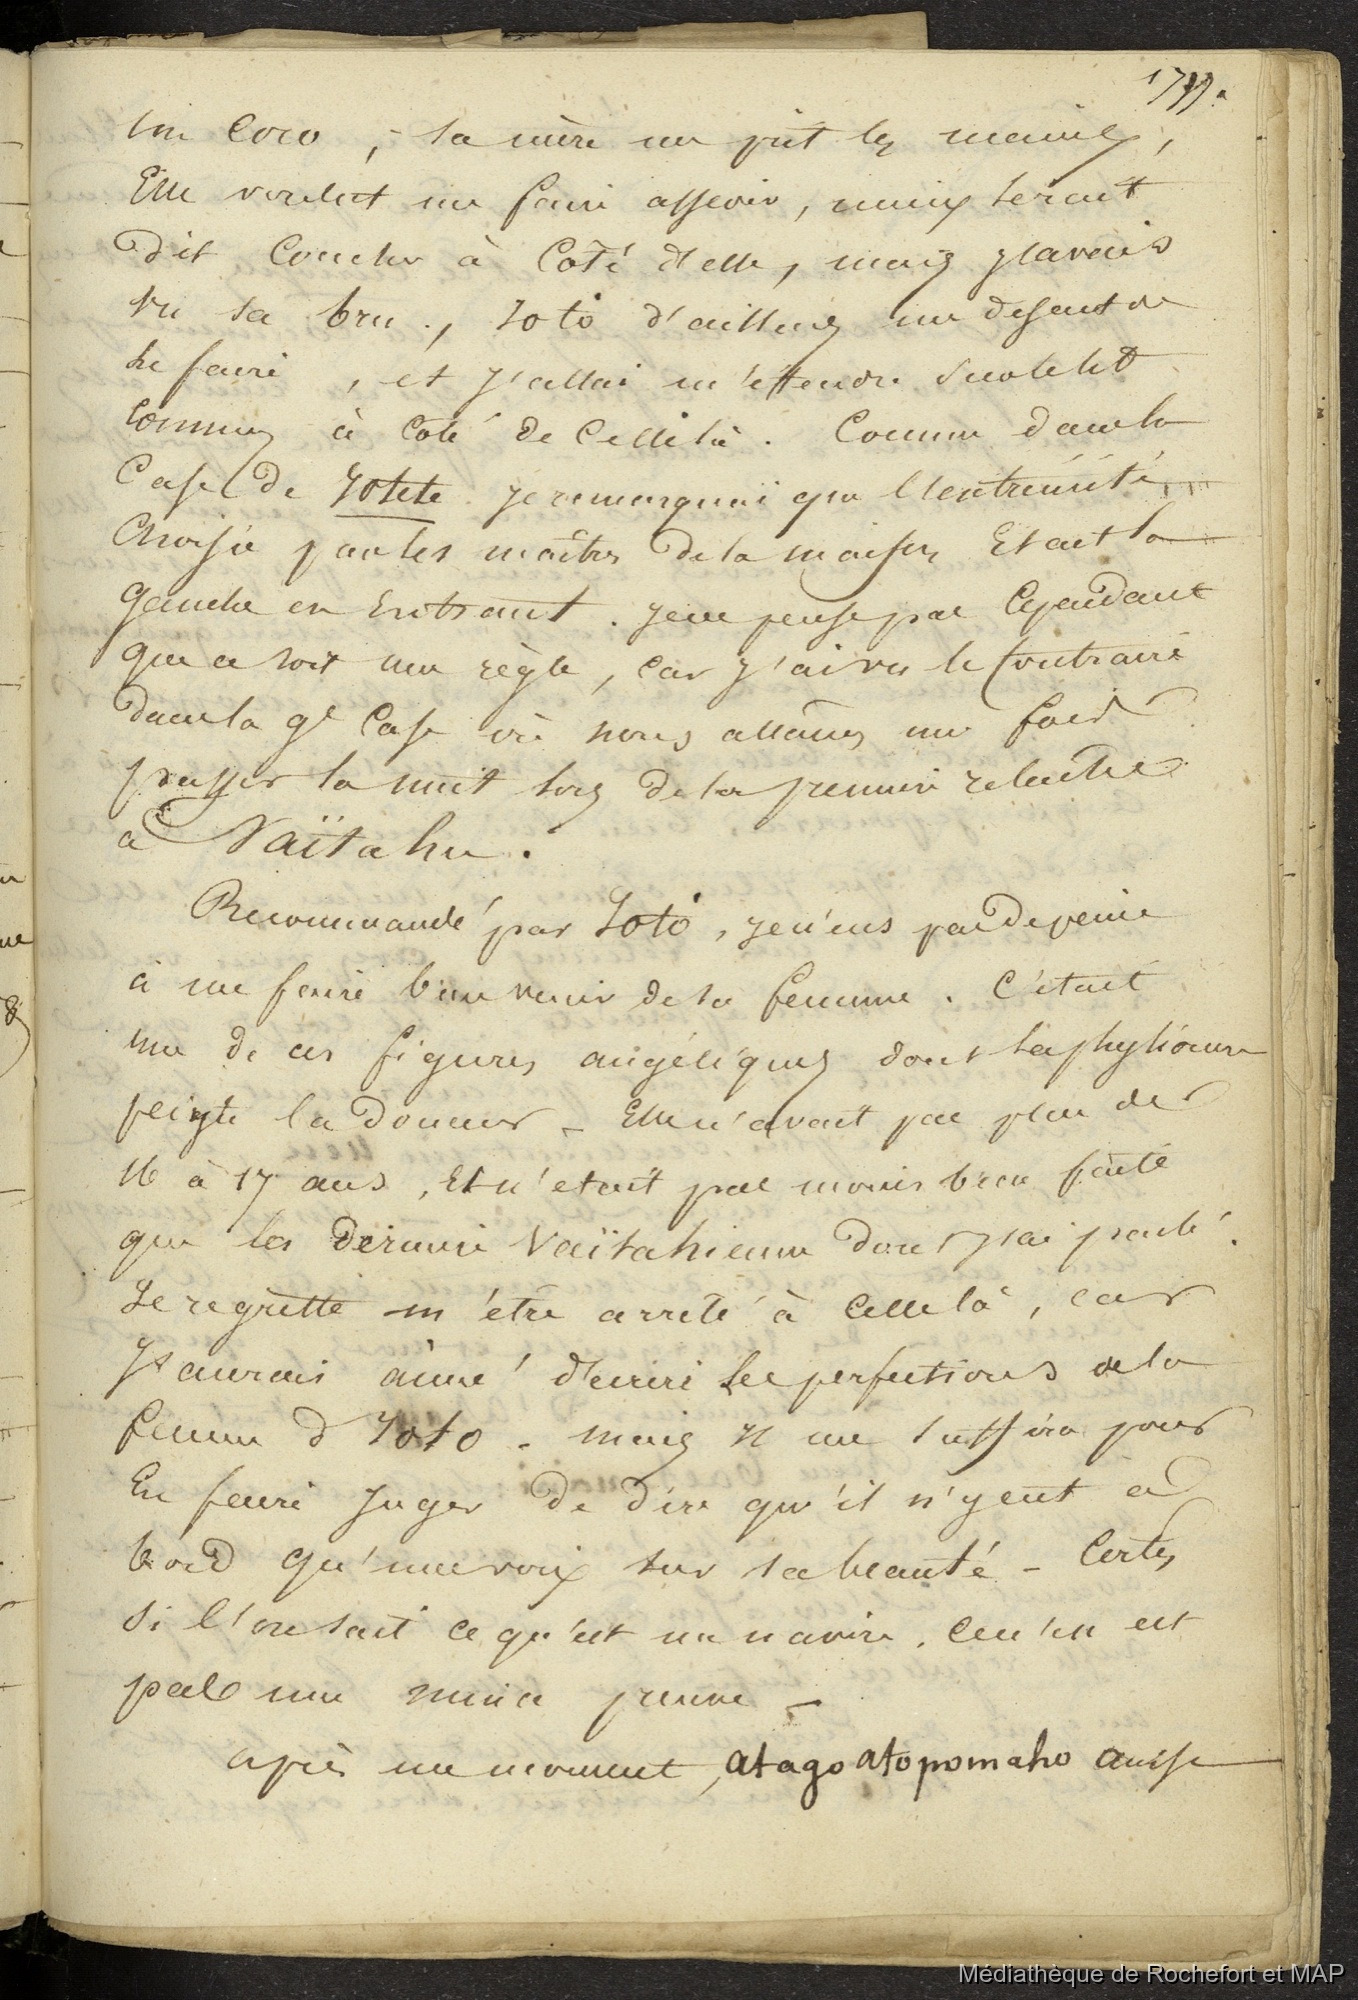 177.
un Coco, - sa mère me prit les mains,
Elle voulut me faire asseoir, mieux serait
dit Coucher à Côté d'elle, mais j'avais
vu sa bru., Yoto d'ailleurs me défendit de
le faire, et j'allai m'étendre sur le lit
commun à Côté de Celle là. Comme dans la
Case de Yotete je remarquai que l'extrémité
Choisie par les maîtres de la maison Etait la
gauche en Entrant. je ne pense pas Cependant
que ce soit une règle, car j'ai vu le Contraire
dans la gde Case où nous allâmes une fois
passer la nuit lors de la première relache
à Vaïtahu.
Recommandé par Yoto, je n'eus pas de peine
à me faire bien venir de sa femme. C'était
une de ces figures angéliques dont la physionomie
peigte la douceur - Elle n'avait pas plus de
16 à 17 ans, Et n'etait pas moins bien faite
que la dernière Vaïtahienne dont j'ai parlé.
Je regrette m'être arrêté à Celle là, car
J'aurais aimé d'écrire les perfections de la
femme d Yoto. mais Il me suffira pour
En faire Juger de dire qu'il n'y eut à
bord qu'une voix sur sa beauté - Certes
Si l'on sait ce qu'est un navire, Ce n'en est
pas une mince preuve -
après un moment, atago atopomaho aussi
Médiathèque de Rochefort et MAP